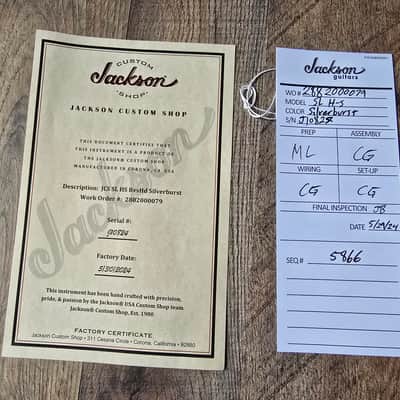 CUSTOM
Jackson
SHOP
JACKSON CUSTOM SHOP
THIS DOCUMENT CERTIFIES THAT
THIS INSTRUMENT IS A PRODUCT OF
THE JACKSON® CUSTOM SHOP
MANUFACTURED IN CORONA, CA, USA
Description: JCS SL HS RevHd Silverburst
Work Order #: 2882000079
Serial #:
J10824
Factory Date:
5/30/2024
This instrument has been hand crafted with precision,
pride, & passion by the Jackson® USA Custom Shop team.
Jackson® Custom Shop, Est. 1980
FACTORY CERTIFICATE
Jackson Custom Shop • 311 Cessna Circle • Corona, California • 92880
Jackson
Jackson
guitars
WO # 2882000079
MODEL SL H-S
COLOR Silverburst
S/N J10824
PREP ASSEMBLY
ML CG
WIRING SET-UP
CG CG
FINAL INSPECTION JB
DATE 5/29/24
SEQ # 5866